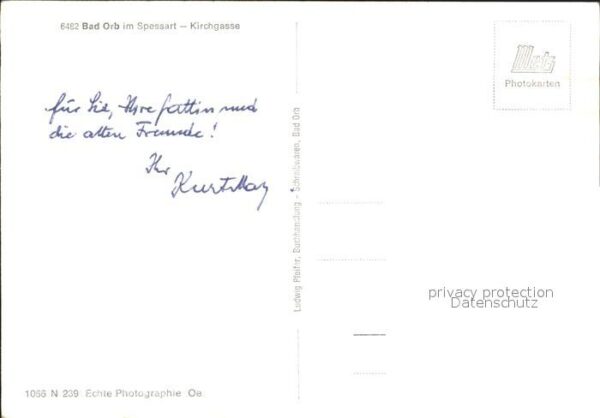 6482 Bad Orb im Spessart – Kirchgasse
Metz
Photokarten
für Sie, Ihre Gattin und
die alten Freunde!
Ihr
Kurt May
Ludwig Pfeifer, Buchhandlung - Schreibwaren, Bad Orb
privacy protection
Datenschutz
1066 N 239 Echte Photographie Oe